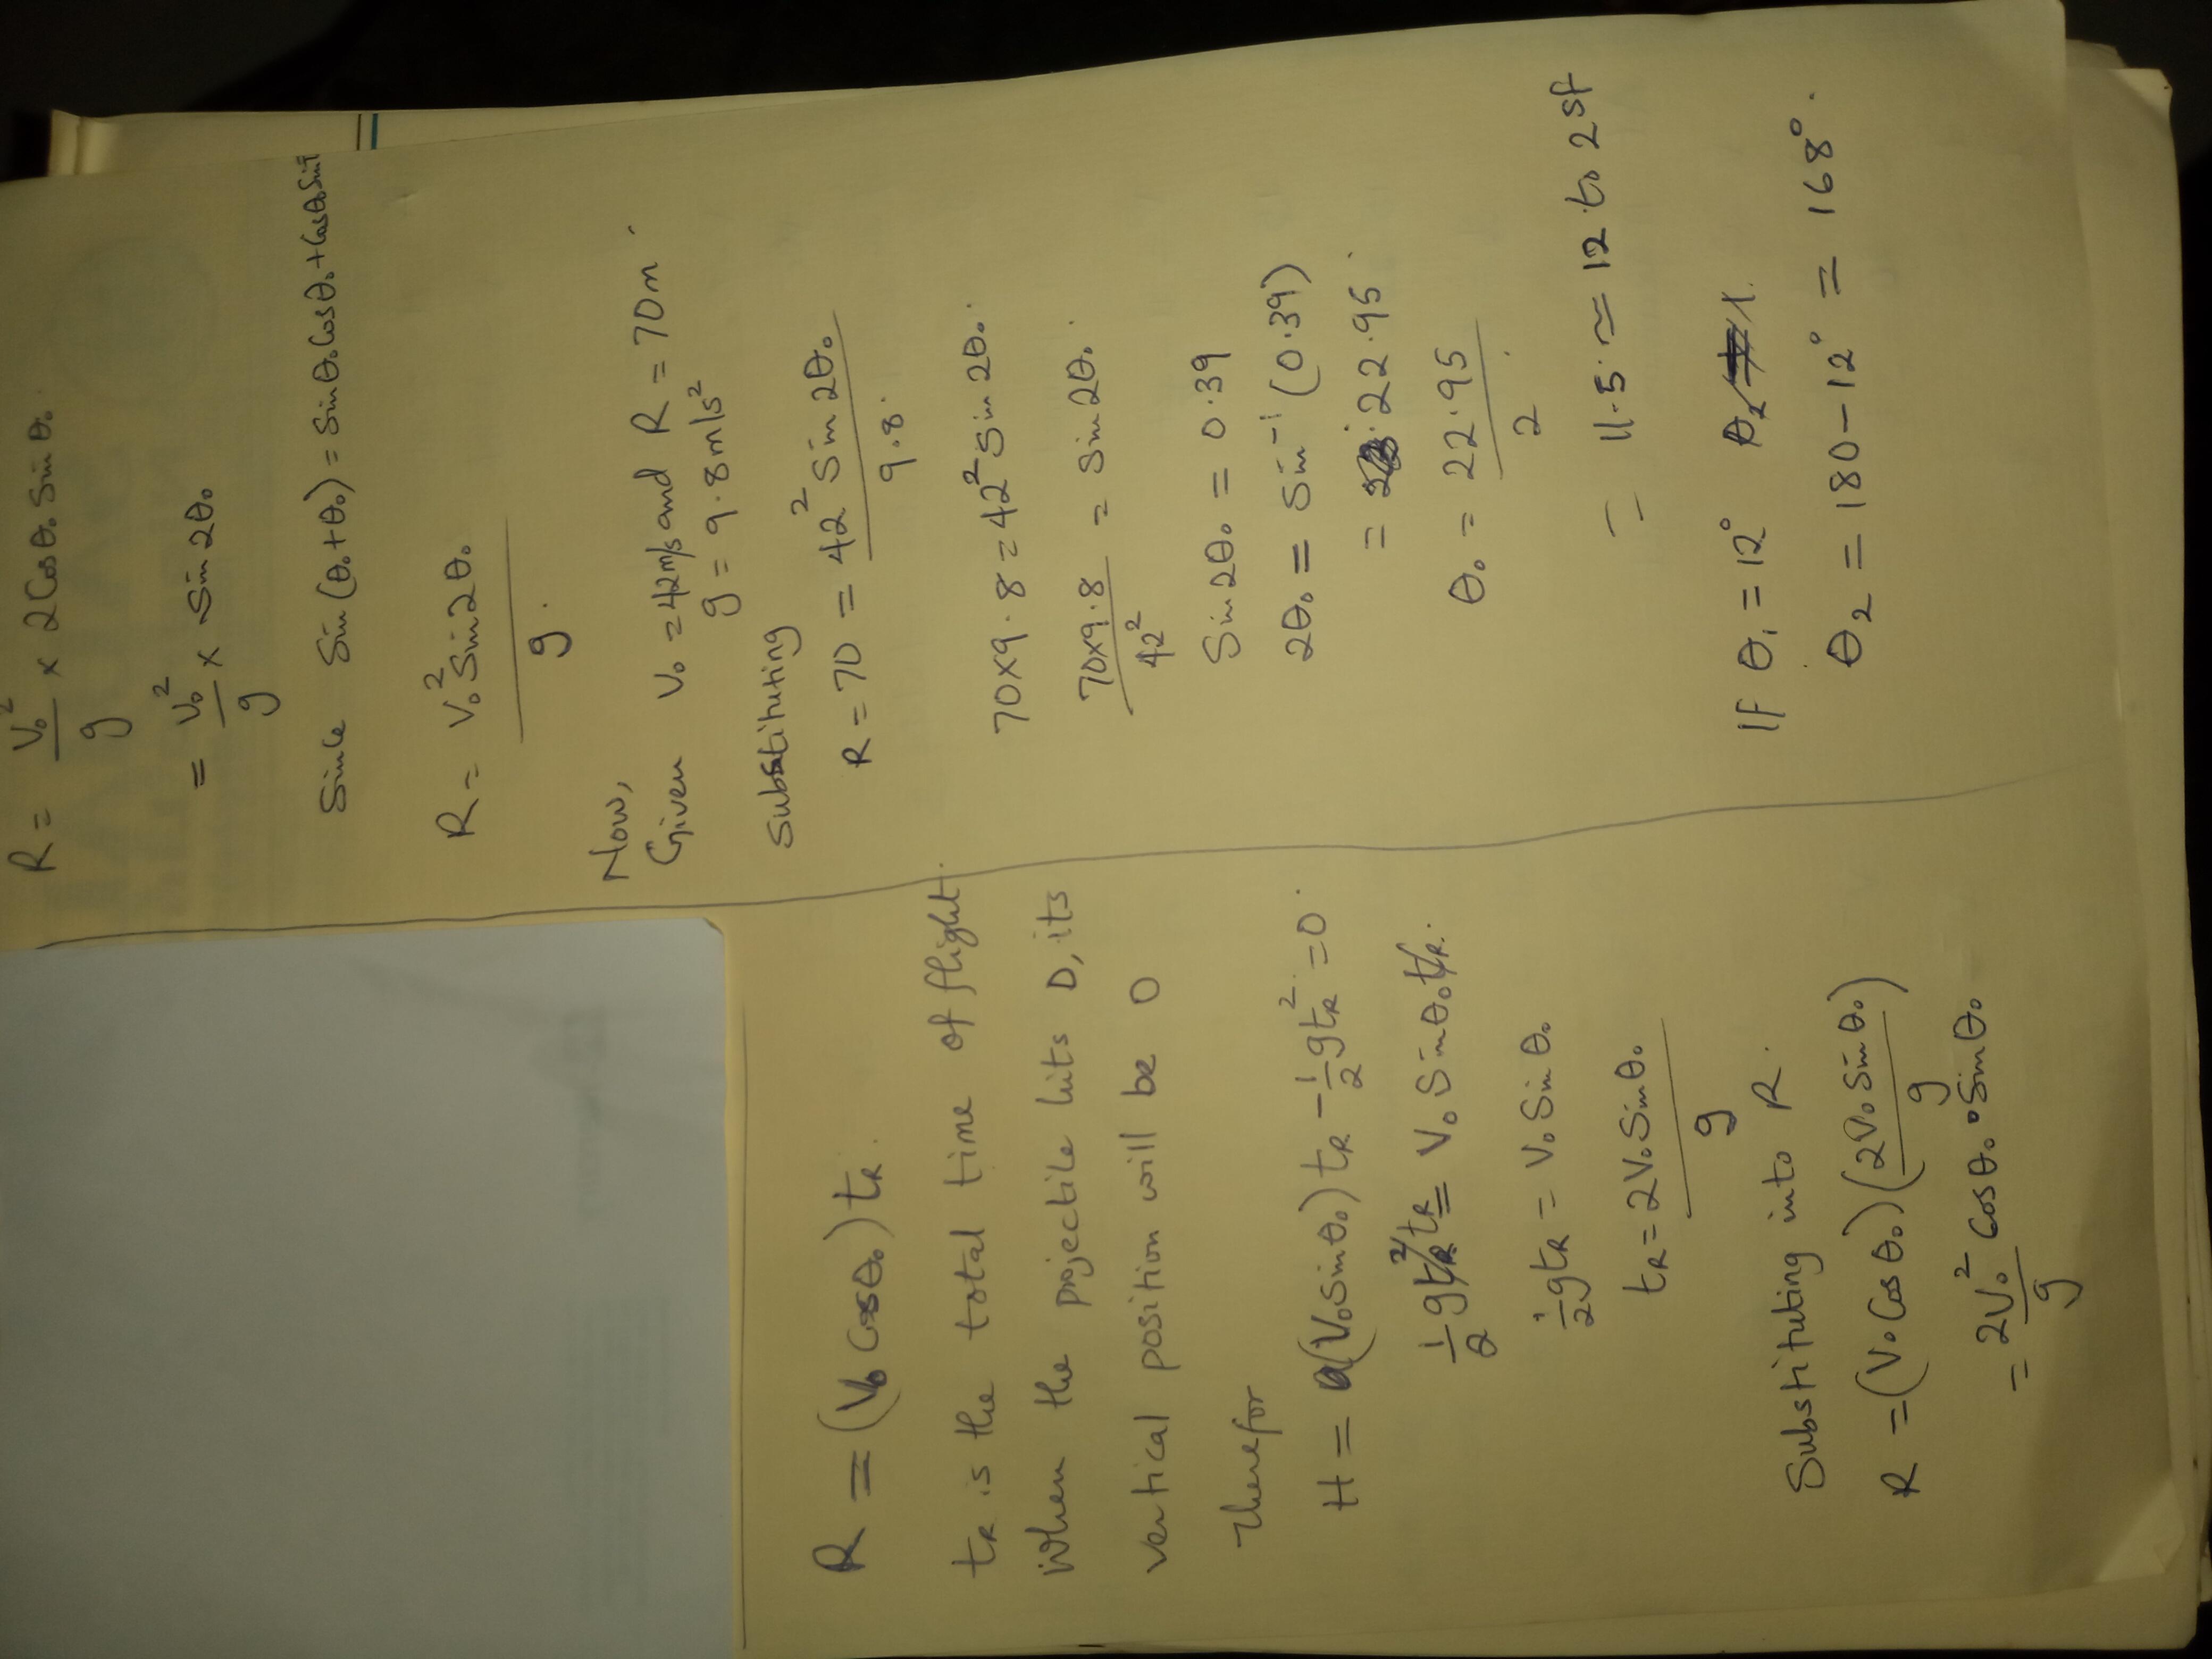 R = (V₀ Cosθ₀) tR.
tR is the total time of flight.
When the projectile hits D, its
vertical position will be 0
therefor
H = (V₀Sinθ₀) tR - 1/2 gtR² = 0.
1/2 gtR² = V₀ Sinθ₀ tR.
1/2 gtR = V₀ Sin θ₀
tR = 2V₀ Sinθ₀ / g
Substituting into R.
R = (V₀ Cos θ₀) (2V₀ Sin θ₀ / g)
= 2V₀² / g Cos θ₀ • Sinθ₀
R = V₀² / g × 2 Cos θ₀ Sin θ₀.
= V₀² / g × Sin 2θ₀
Since Sin (θ₀ + θ₀) = Sin θ₀ Cos θ₀ + Cos θ₀ Sin
R = V₀² Sin 2θ₀ / g.
Now,
Given V₀ = 42 m/s and R = 70m.
g = 9.8 m/s²
Substituting
R = 70 = 42² Sin 2θ₀ / 9.8.
70×9.8 = 42² Sin 2θ₀.
70×9.8 / 42² = Sin 2θ₀.
Sin 2θ₀ = 0.39
2θ₀ = Sin⁻¹ (0.39)
= 22.95.
θ₀ = 22.95 / 2
= 11.5. ≃ 12 to 2 sf
IF θ₁ = 12°
θ₂ = 180 - 12° = 168°.